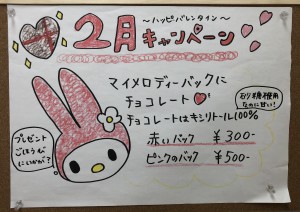 ～ハッピーバレンタイン～
2月キャンペーン
マイメロディーバックに
チョコレート
チョコレートはキシリトール100%
砂糖不使用
なのに甘い!
赤いバック ¥300-
ピンクのバック ¥500-
プレゼント
ごほうび
にいかが?